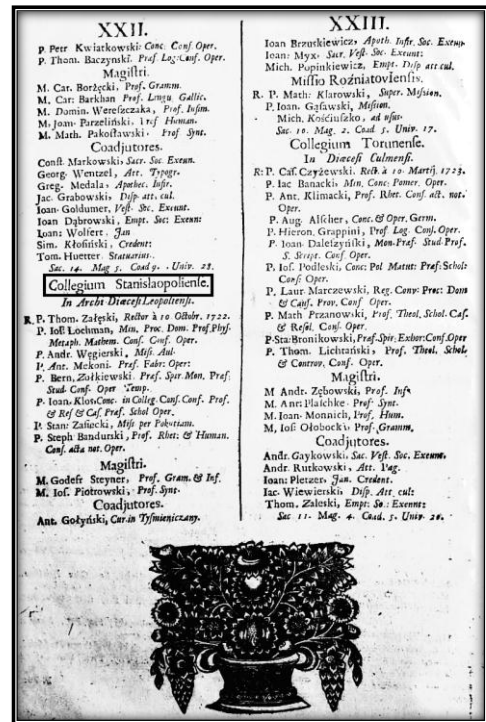 XXII.
P. Petr Kwiatkowski: Conc. Conf. Oper.
P. Thom. Baczynski. Præf. Log: Conf. Oper.
Magiſtri.
M. Car. Borżęcki, Prof. Gramm.
M. Car: Barkhan Prof. Lingu Gallic.
M. Domin. Wereſzczaka, Prof. Infim.
M. Joan. Parzeliński, Prof Human.
M. Math. Pakoſławski. Prof Synt.
Coadjutores.
Conſt. Markowski, Sacr. Soc. Exeun.
Georg. Wentzel, Att. Typogr.
Greg. Medala, Apothec. Infir.
Jac. Grabowski, Diſp. att. cul.
Ioan. Goldumer, Veſt. Soc. Exeunt.
Ioan Dąbrowski, Empt. Soc: Exeun:
Ioan: Wolfert. Jan
Sim. Kłoſiński, Credent:
Tom. Huetter. Statuarius.
Sac. 14. Mag 5. Coad 9. Univ. 28.
Collegium Stanislaopolienſe.
In Archi Diœceſi Leopolienſi.
R. P. Thom. Załęski, Rector à 10 Octobr. 1722.
P. Ioſ: Lochman, Min. Proc. Dom. Prof. Phyſ.
Metaph. Mathem. Conſ. Conf. Oper.
P. Andr. Węgierski, Miſſ. Aul.
P. Ant. Mekoni. Præf. Fabr: Oper:
P. Bern, Zołkiewski. Præf. Spir. Mon. Præf.
Stud. Conf. Oper Temp.
P. Ioan. Klos, Conc. in Colleg. Conf. Conf. Prof.
& Ref & Caſ. Præf. Schol Oper.
P. Stan: Zaſiecki, Miſſ per Pokutiam.
P. Steph Bandurski, Prof. Rhet: & Human.
Conf. acta not. Oper.
Magiſtri.
M. Godefr Steyner, Prof. Gram. & Inf.
M. Ioſ. Piotrowski, Prof. Synt.
Coadjutores.
Ant. Gołyński, Cur. in Tyſmieniczany.
XXIII.
Ioan Brzuskiewicz, Apoth. Infir. Soc. Exeun.
Ioan: Myx. Sacr. Veſt. Soc. Exeunt:
Mich. Popinkiewicz, Empt. Diſp att cul.
Miſſio Roźniatovienſis.
R. P. Math: Klarowski, Super. Miſſion.
P. Ioan. Gąſawski, Miſſion.
Mich. Kościuſzko, ad uſus.
Sac. 10. Mag. 2. Coad 5. Univ. 17.
Collegium Torunenſe.
In Diœceſi Culmenſi.
R: P. Caſ. Czyżewski. Rect. à 10. Martij. 1723.
P. Iac Banacki, Min, Conc: Pomer. Oper.
P. Ant. Klimacki, Prof. Rhet. Conf. act. not.
Oper.
P. Aug. Alſcher, Conc. & Oper. Germ.
P. Hieron. Grappini, Prof Log. Conf. Oper.
P. Ioan. Daleſzyński, Mon. Præf. Stud. Prof.
S. Script. Conf. Oper.
P. Ioſ. Podleski, Conc: Pol Matut: Præf: Schol:
Conf: Oper.
P. Laur. Marczewski, Reg. Conv: Proc: Dom
& Cauſ. Prov. Conf Oper.
P. Math Przanowski, Prof. Theol. Schol. Caſ.
& Reſol. Conf. Oper.
P. Sta: Bronikowski, Præf. Spir: Exhor: Conf. Oper
P. Thom. Lichtański, Prof. Theol. Schol.
& Controv. Conf. Oper.
Magiſtri.
M Andr. Zębowski, Prof. Inf.
M. Ant: Plaſchke, Prof. Synt.
M. Ioan. Monnich, Prof. Hum.
M, Ioſ Ołobocki, Prof. Gramm,
Coadjutores.
Andr. Gaykowski. Sac. Veſt. Soc. Exeunt.
Andr. Rutkowski, Att. Pag.
Ioan: Pletzer. Jan. Credent.
Iac. Wiewierski, Diſp. Att. cul:
Thom. Zaleski, Empt: So.: Exeunt:
Sac 11. Mag. 4. Coad. 5. Univ. 20.